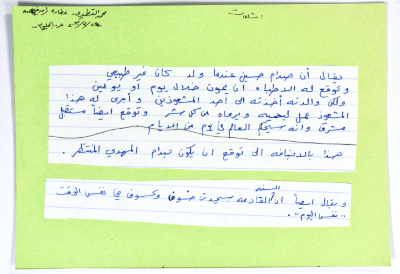 اشاعات
يقال أن صدام حسين عندما ولد كان غير طبيعي
وتوقع له الاطباء ان يموت خلال يوم او يومين
ولكن والدته أخذته الى احد المشعوذين و أجرى له هذا
المشعوذ عمل ليحميه و يرعاه من كل شر وتوقع ايضاً مستقبل
مشرق وانه سيحكم العالم في يوم من الايام
هذا بالاضافه الى توقع ان يكون صدام المهدي المنتظر .
السنه
و يقال ايضاً ان القادمه سيحدث خسوف وكسوف في نفس الوقت
"نفس اليوم" .